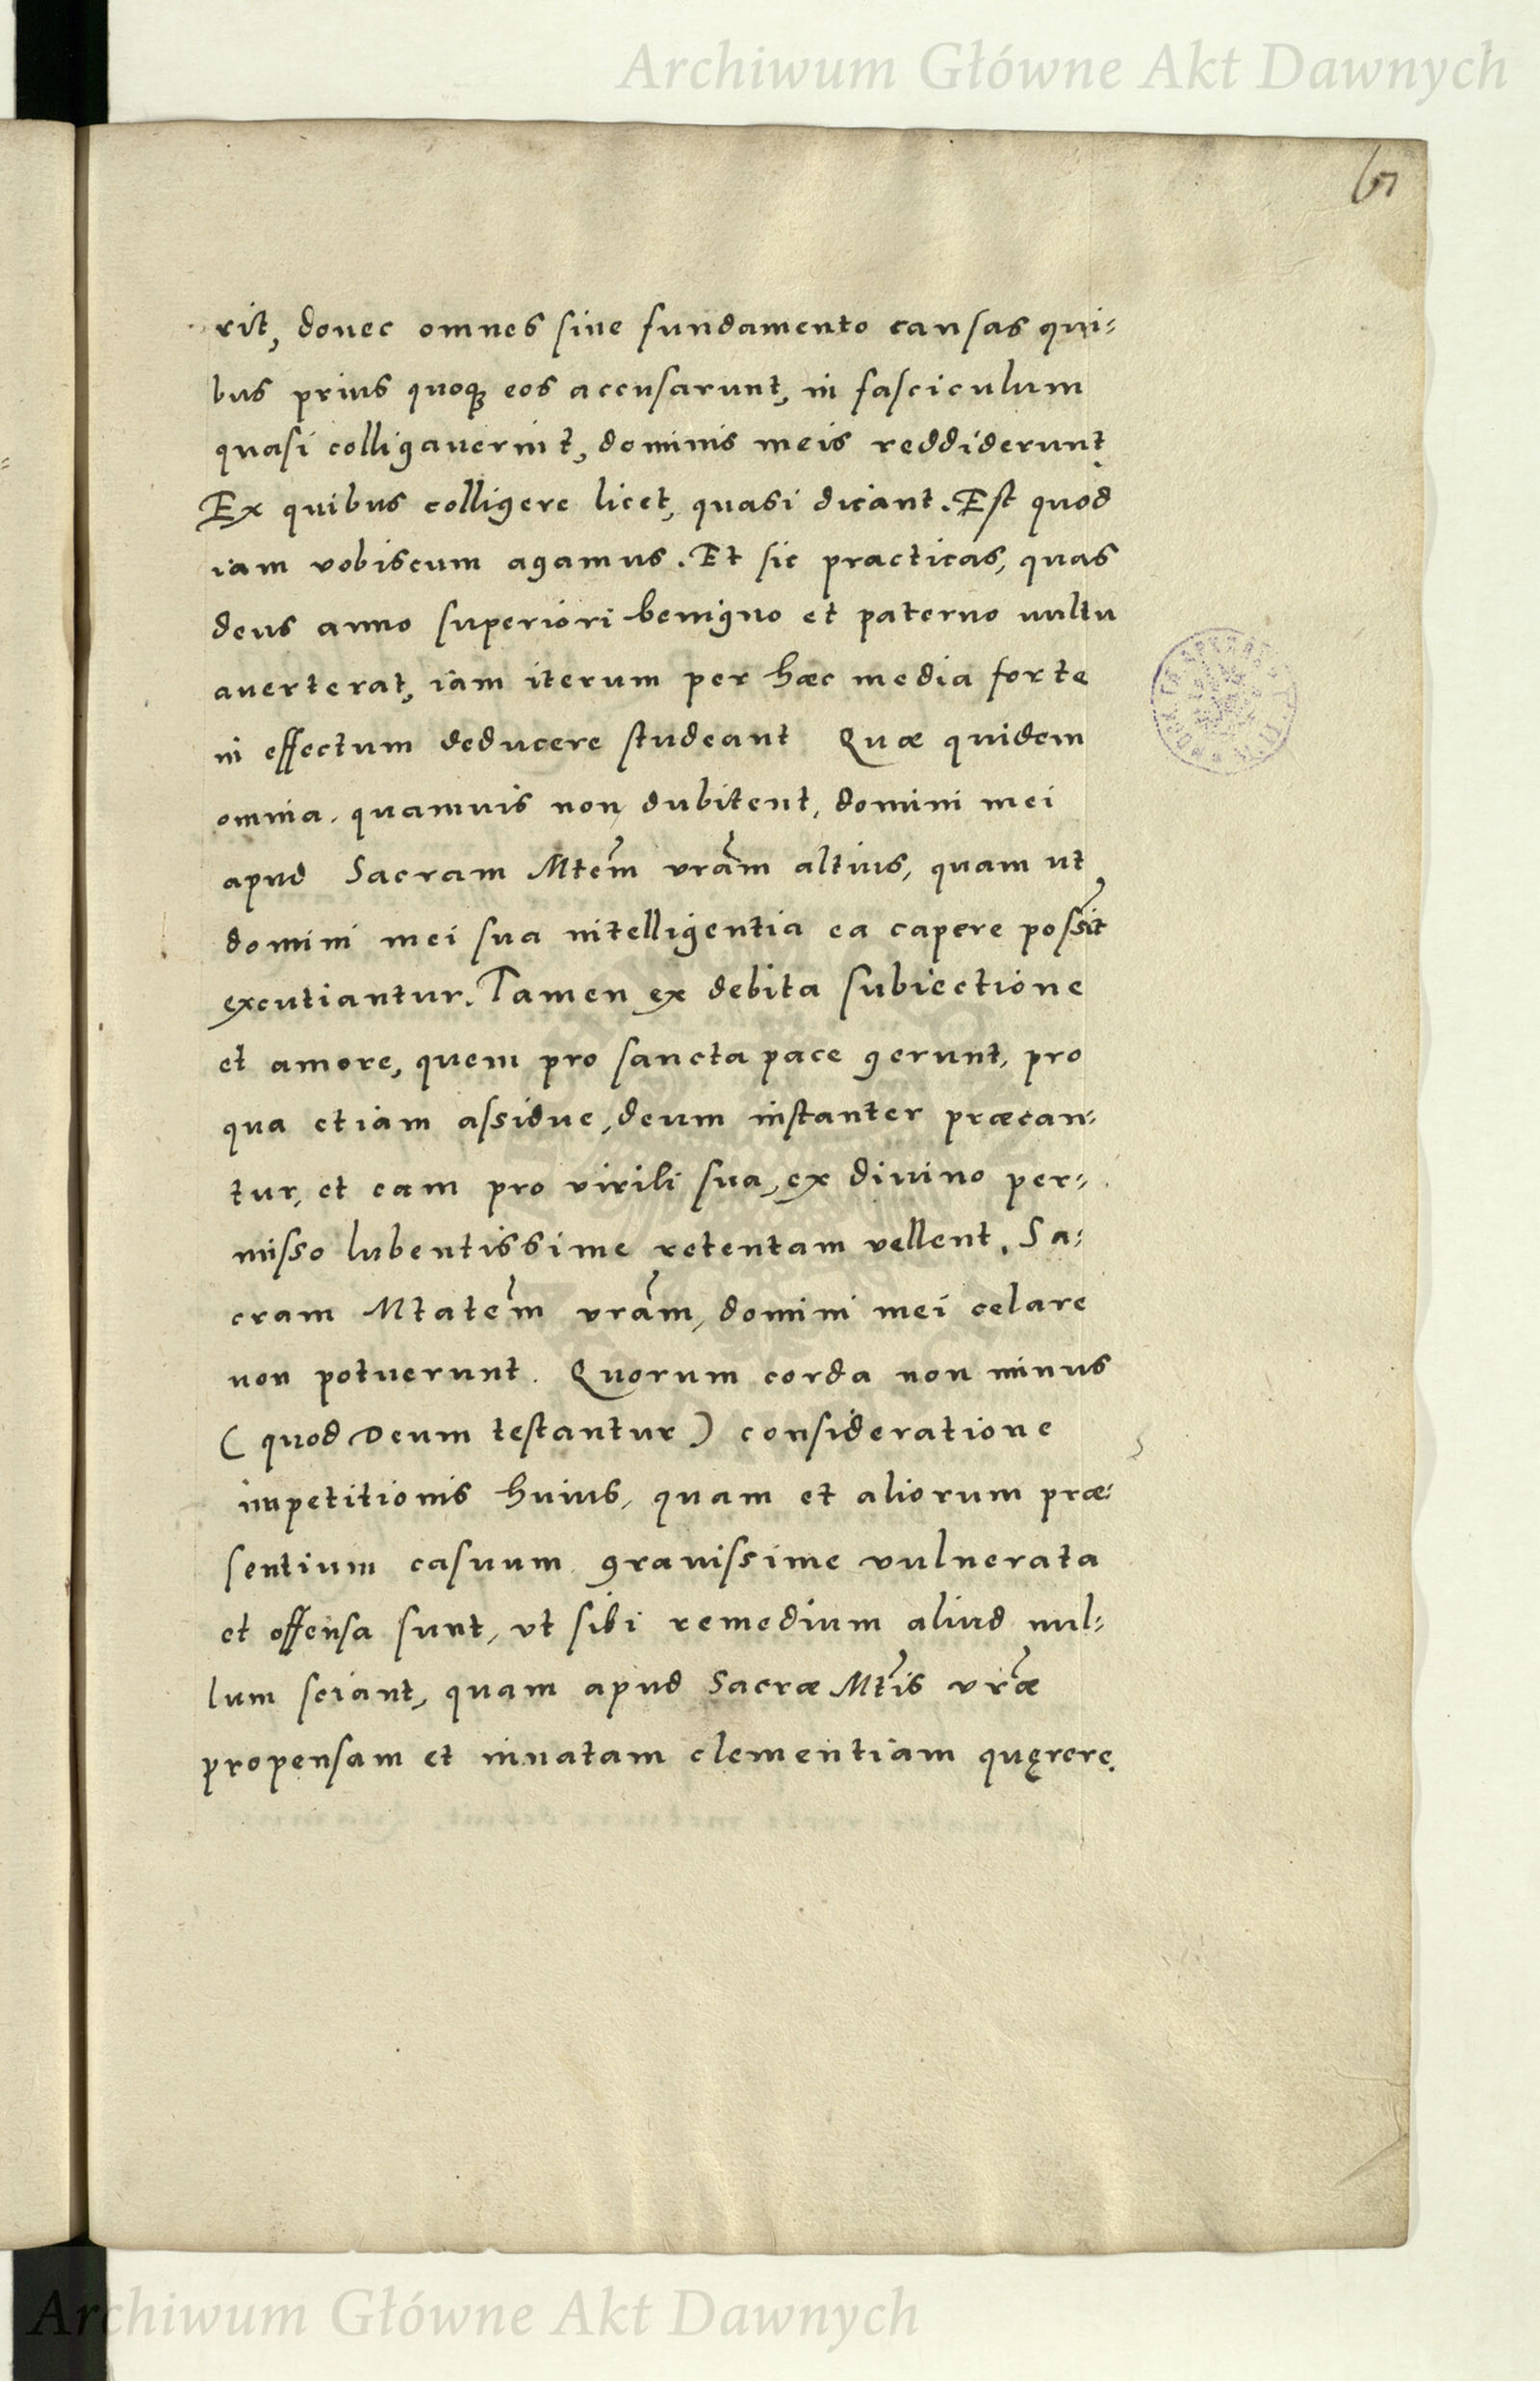 Archiwum Główne Akt Dawnych
67
rit, donec omnes sine fundamento causas qui=
bus prius quoq̃ eos accusarunt, in fasciculum
quasi colligauerint, dominis meis reddiderunt.
Ex quibus colligere licet, quasi dicant. Est quod
iam vobiscum agamus. Et sic practicas, quas
deus anno superiori benigno et paterno uultu
auerterat, iam iterum per hæc media forte
in effectum deducere studeant Quæ quidem
omnia. quamuis non dubitent, domini mei
apud Sacram Mtem̃ vram̃ altius, quam ut
domini mei sua intelligentia ea capere possĩt
excutiantur. Tamen ex debita subiectione
et amore, quem pro sancta pace gerunt, pro
qua etiam assidue, deum instanter præcan=
tur, et eam pro virili sua, ex diuino per=
misso lubentissime retentam vellent. Sa=
cram Mtatem̃ vram̃, domini mei celare
non potuerunt. Quorum corda non minus
( quod Deum testantur ) consideratione
impetitionis huius, quam et aliorum præ=
sentium casuum grauissime vulnerata
et offensa sunt, vt sibi remedium aliud nul=
lum sciant, quam apud Sacræ Mtĩs vræ̃
propensam et innatam clementiam quęrere.
Archiwum Główne Akt Dawnych